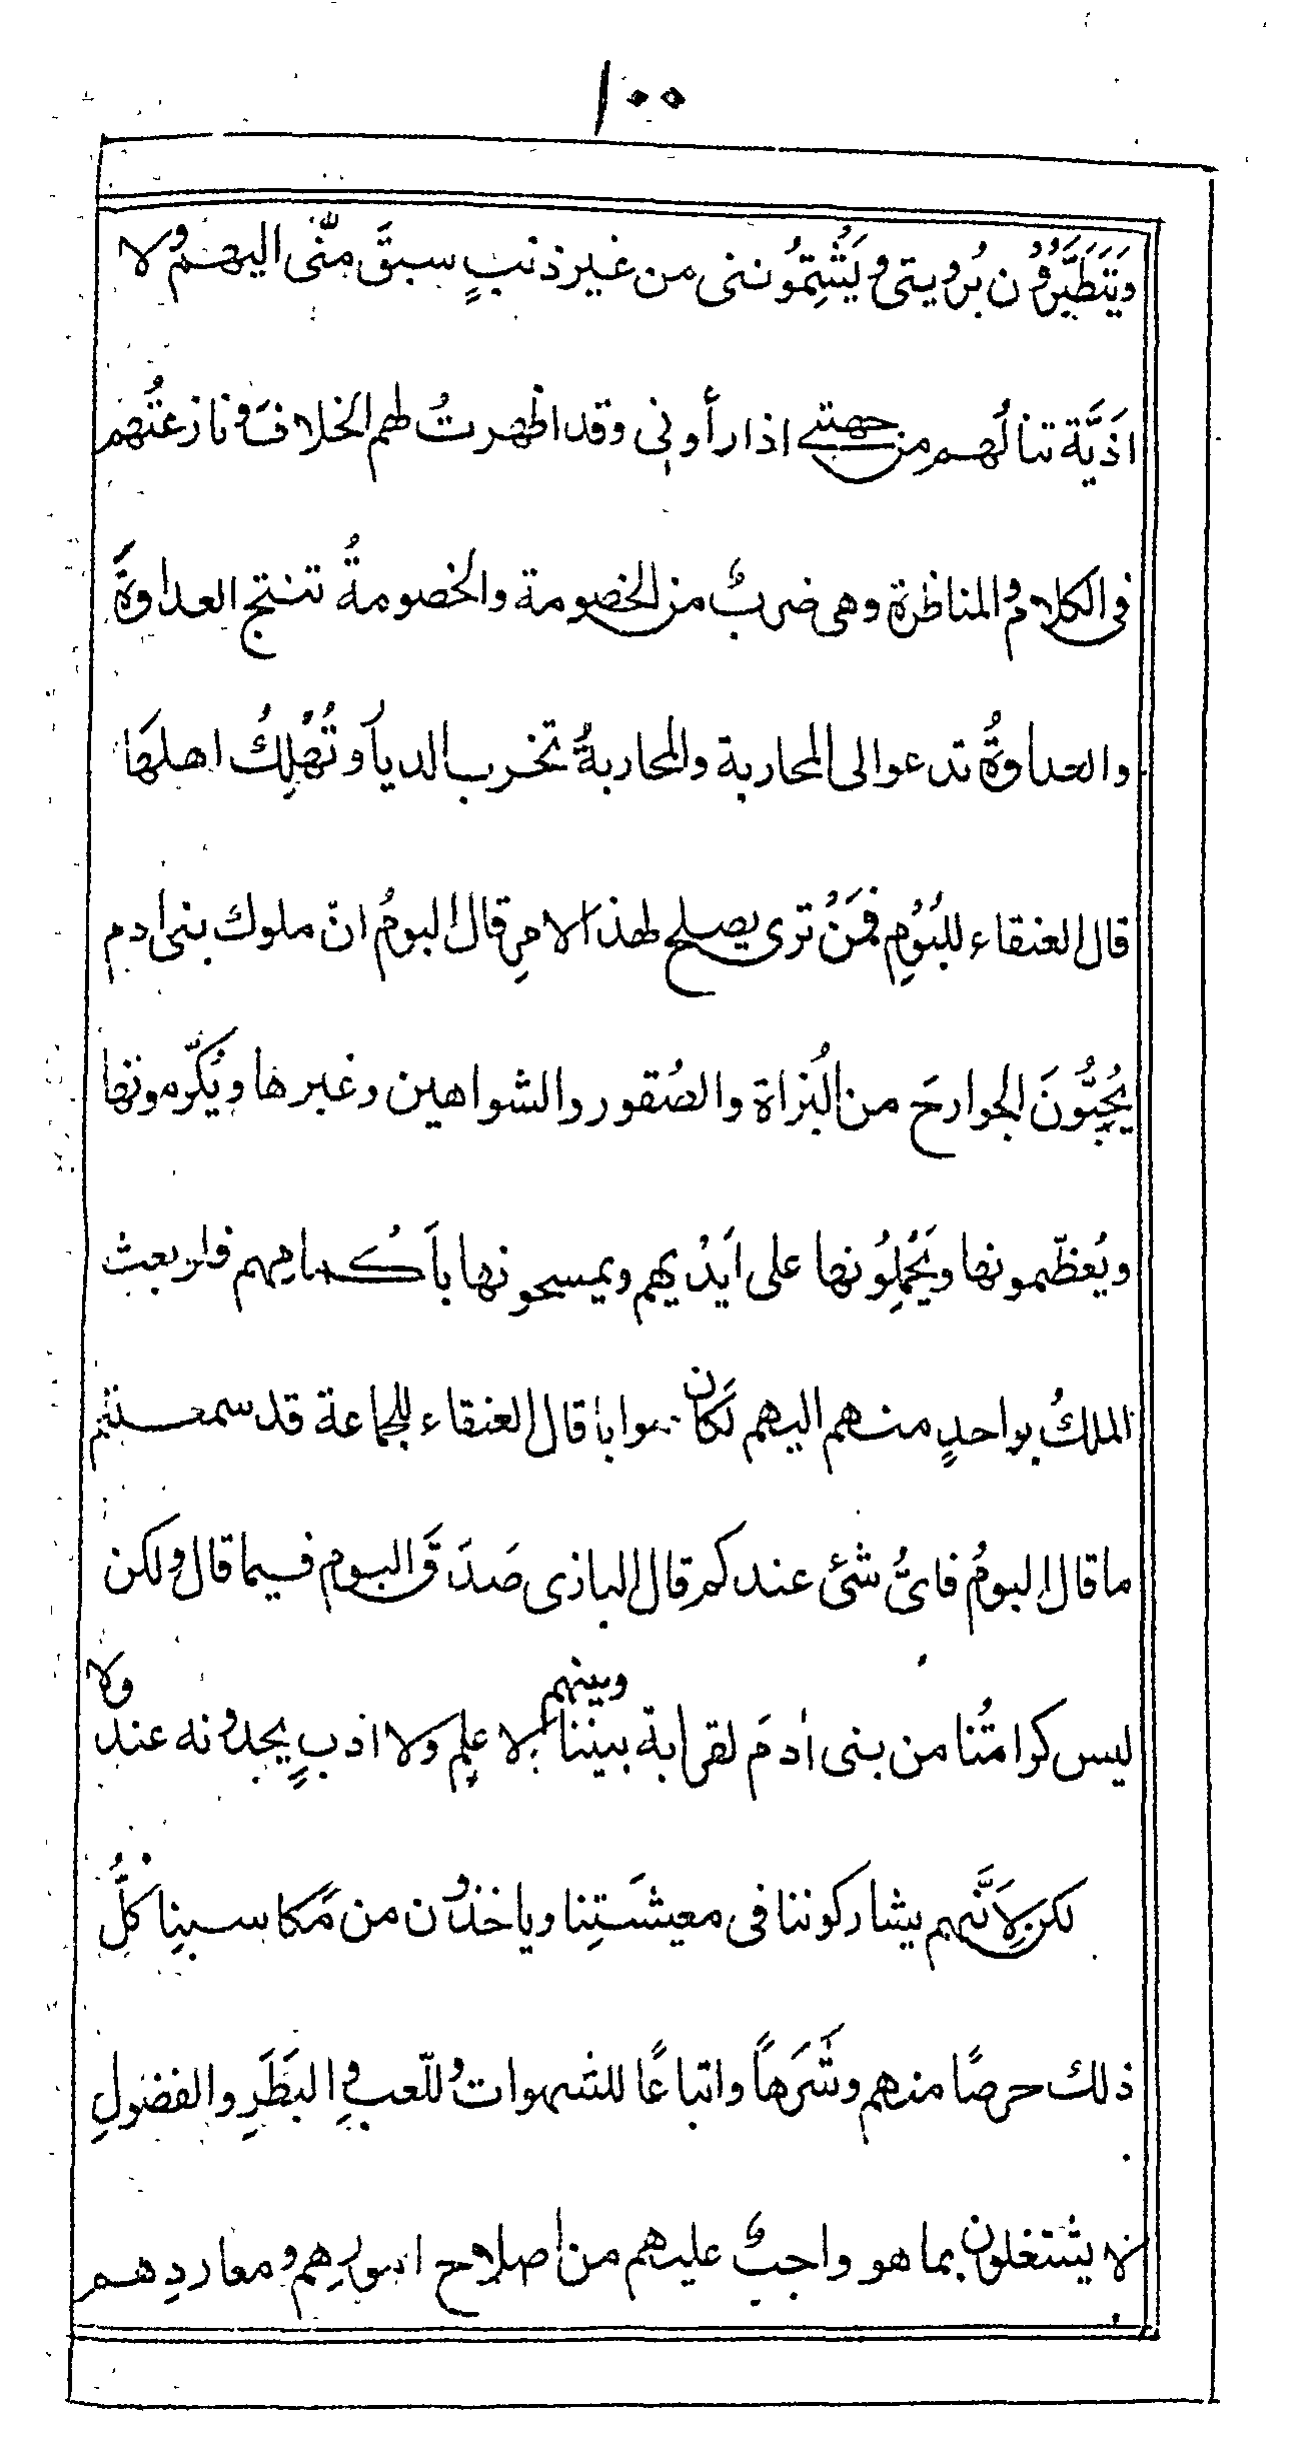 ١٠٠
وَيَتَطَيَّرُوْن بُرويتى وَيَشْتِمُوننى من غير ذنبٍ سبقَ مِنّى اليهم ولا
اَذيَّة تنالُهم من جهتى اذا رأونى وقد اظهرتُ لهم الخلافَ ونازعتُهم
فى الكلام والمناظرة وهى ضربٌ من الخصومة والخصومةُ تنتج العداوةَ
والعداوةُ تدعوا الى المحاربة والمحاربةُ تخرب الديار وتُهْلِكُ اهلهَا
قال العنقاء للبُوْمِ فمَنْ ترى يصلح لهذا الامرِ قال البومُ انّ ملوك بنى ادم
يُحِبُّونَ الجوارحَ من البُزاة والصُقور والشواهين وغيرها ويُكرّمونها
ويُعظّمونها ويَحْمِلُونها على اَيْديهم ويمسحونها باَكُمامهم فلو بعث
الملكُ بواحدٍ منهم اليهم لَكان صوابا قال العنقاء للجماعة قد سمعتم
ما قال البومُ فاىُّ شئ عندكم قال البازى صَدَقَ البوم فيما قال ولكن
ليس كرامتُنا من بنى اٰدمَ لقرابة بيننا وبينهم ولا علمٍ ولا ادبٍ يجدونه عندنا
لكن لِاَنَّهم يشاركوننا فى معيشَتِنا وياخذون من مَكاسبِنا كلُّ
ذلك حرصًا منهم وشَرَهاً واتباعًا للشهوات واللّعبِ والبَطَرِ والفضولِ
لا يشتغلون بما هو واجبٌ عليهم من اصلاح امورِهم ومعادِهم